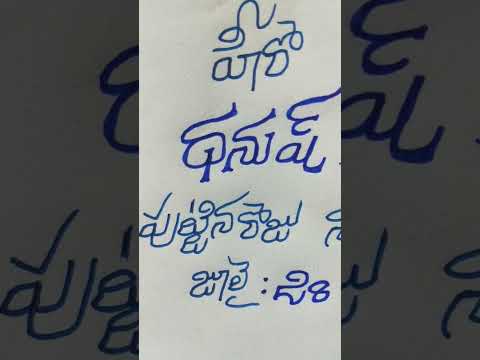 హీరో
ధనుష్
పుట్టినరోజు
జూలై :